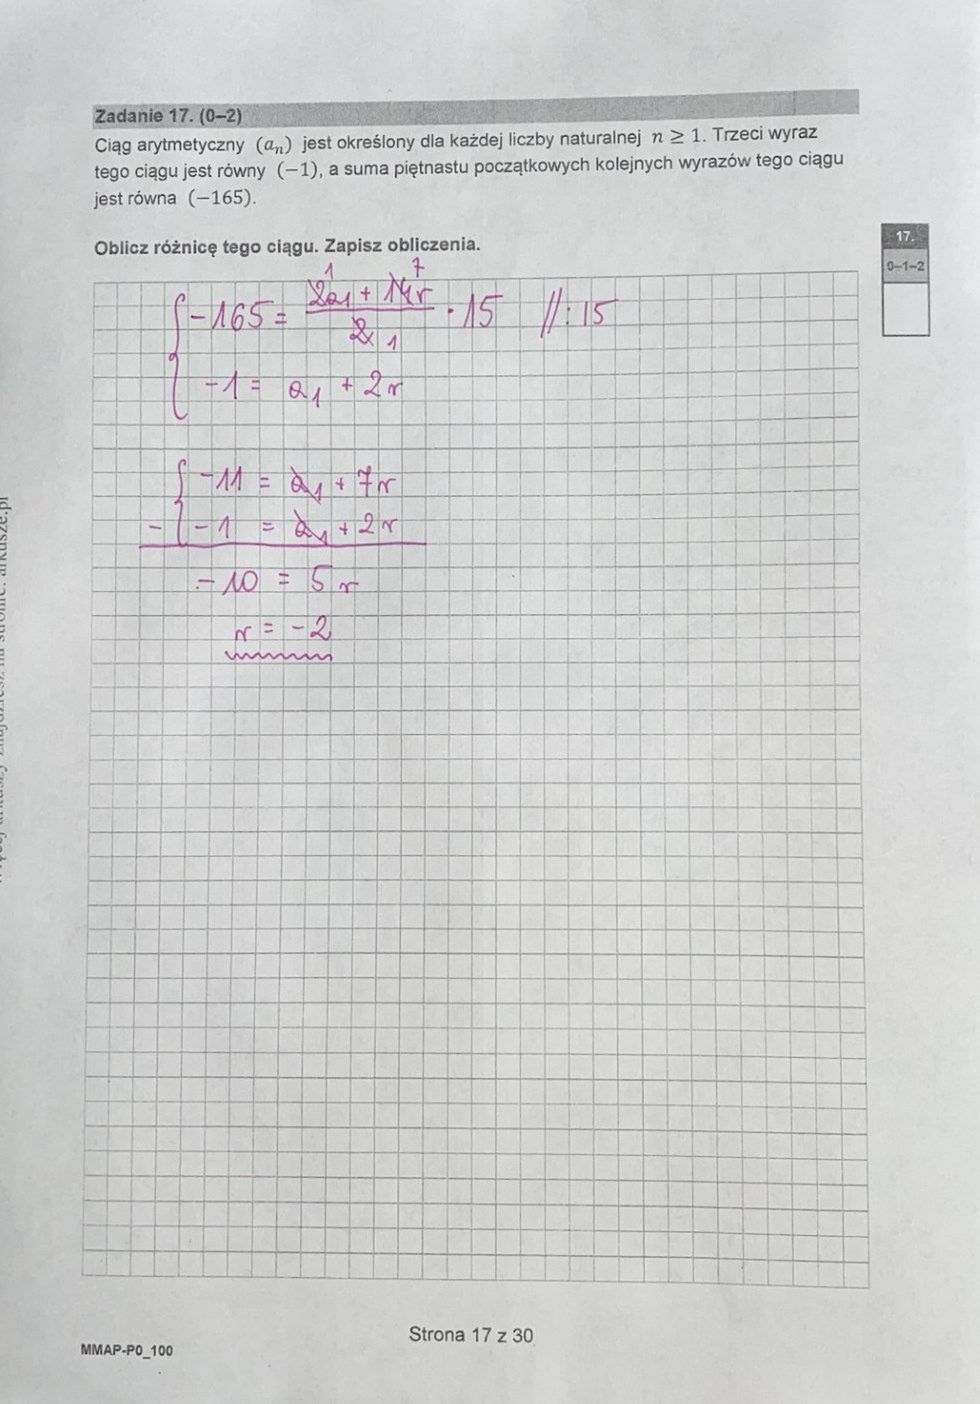 Zadanie 17. (0–2)
Ciąg arytmetyczny (aₙ) jest określony dla każdej liczby naturalnej n ≥ 1. Trzeci wyraz
tego ciągu jest równy (−1), a suma piętnastu początkowych kolejnych wyrazów tego ciągu
jest równa (−165).
Oblicz różnicę tego ciągu. Zapisz obliczenia.
17.
0–1–2
1 7
−165 = (2a₁ + 14r)/2 · 15 //:15
1
−1 = a₁ + 2r
−11 = a₁ + 7r
− −1 = a₁ + 2r
−10 = 5r
r = −2
Strona 17 z 30
MMAP-P0_100